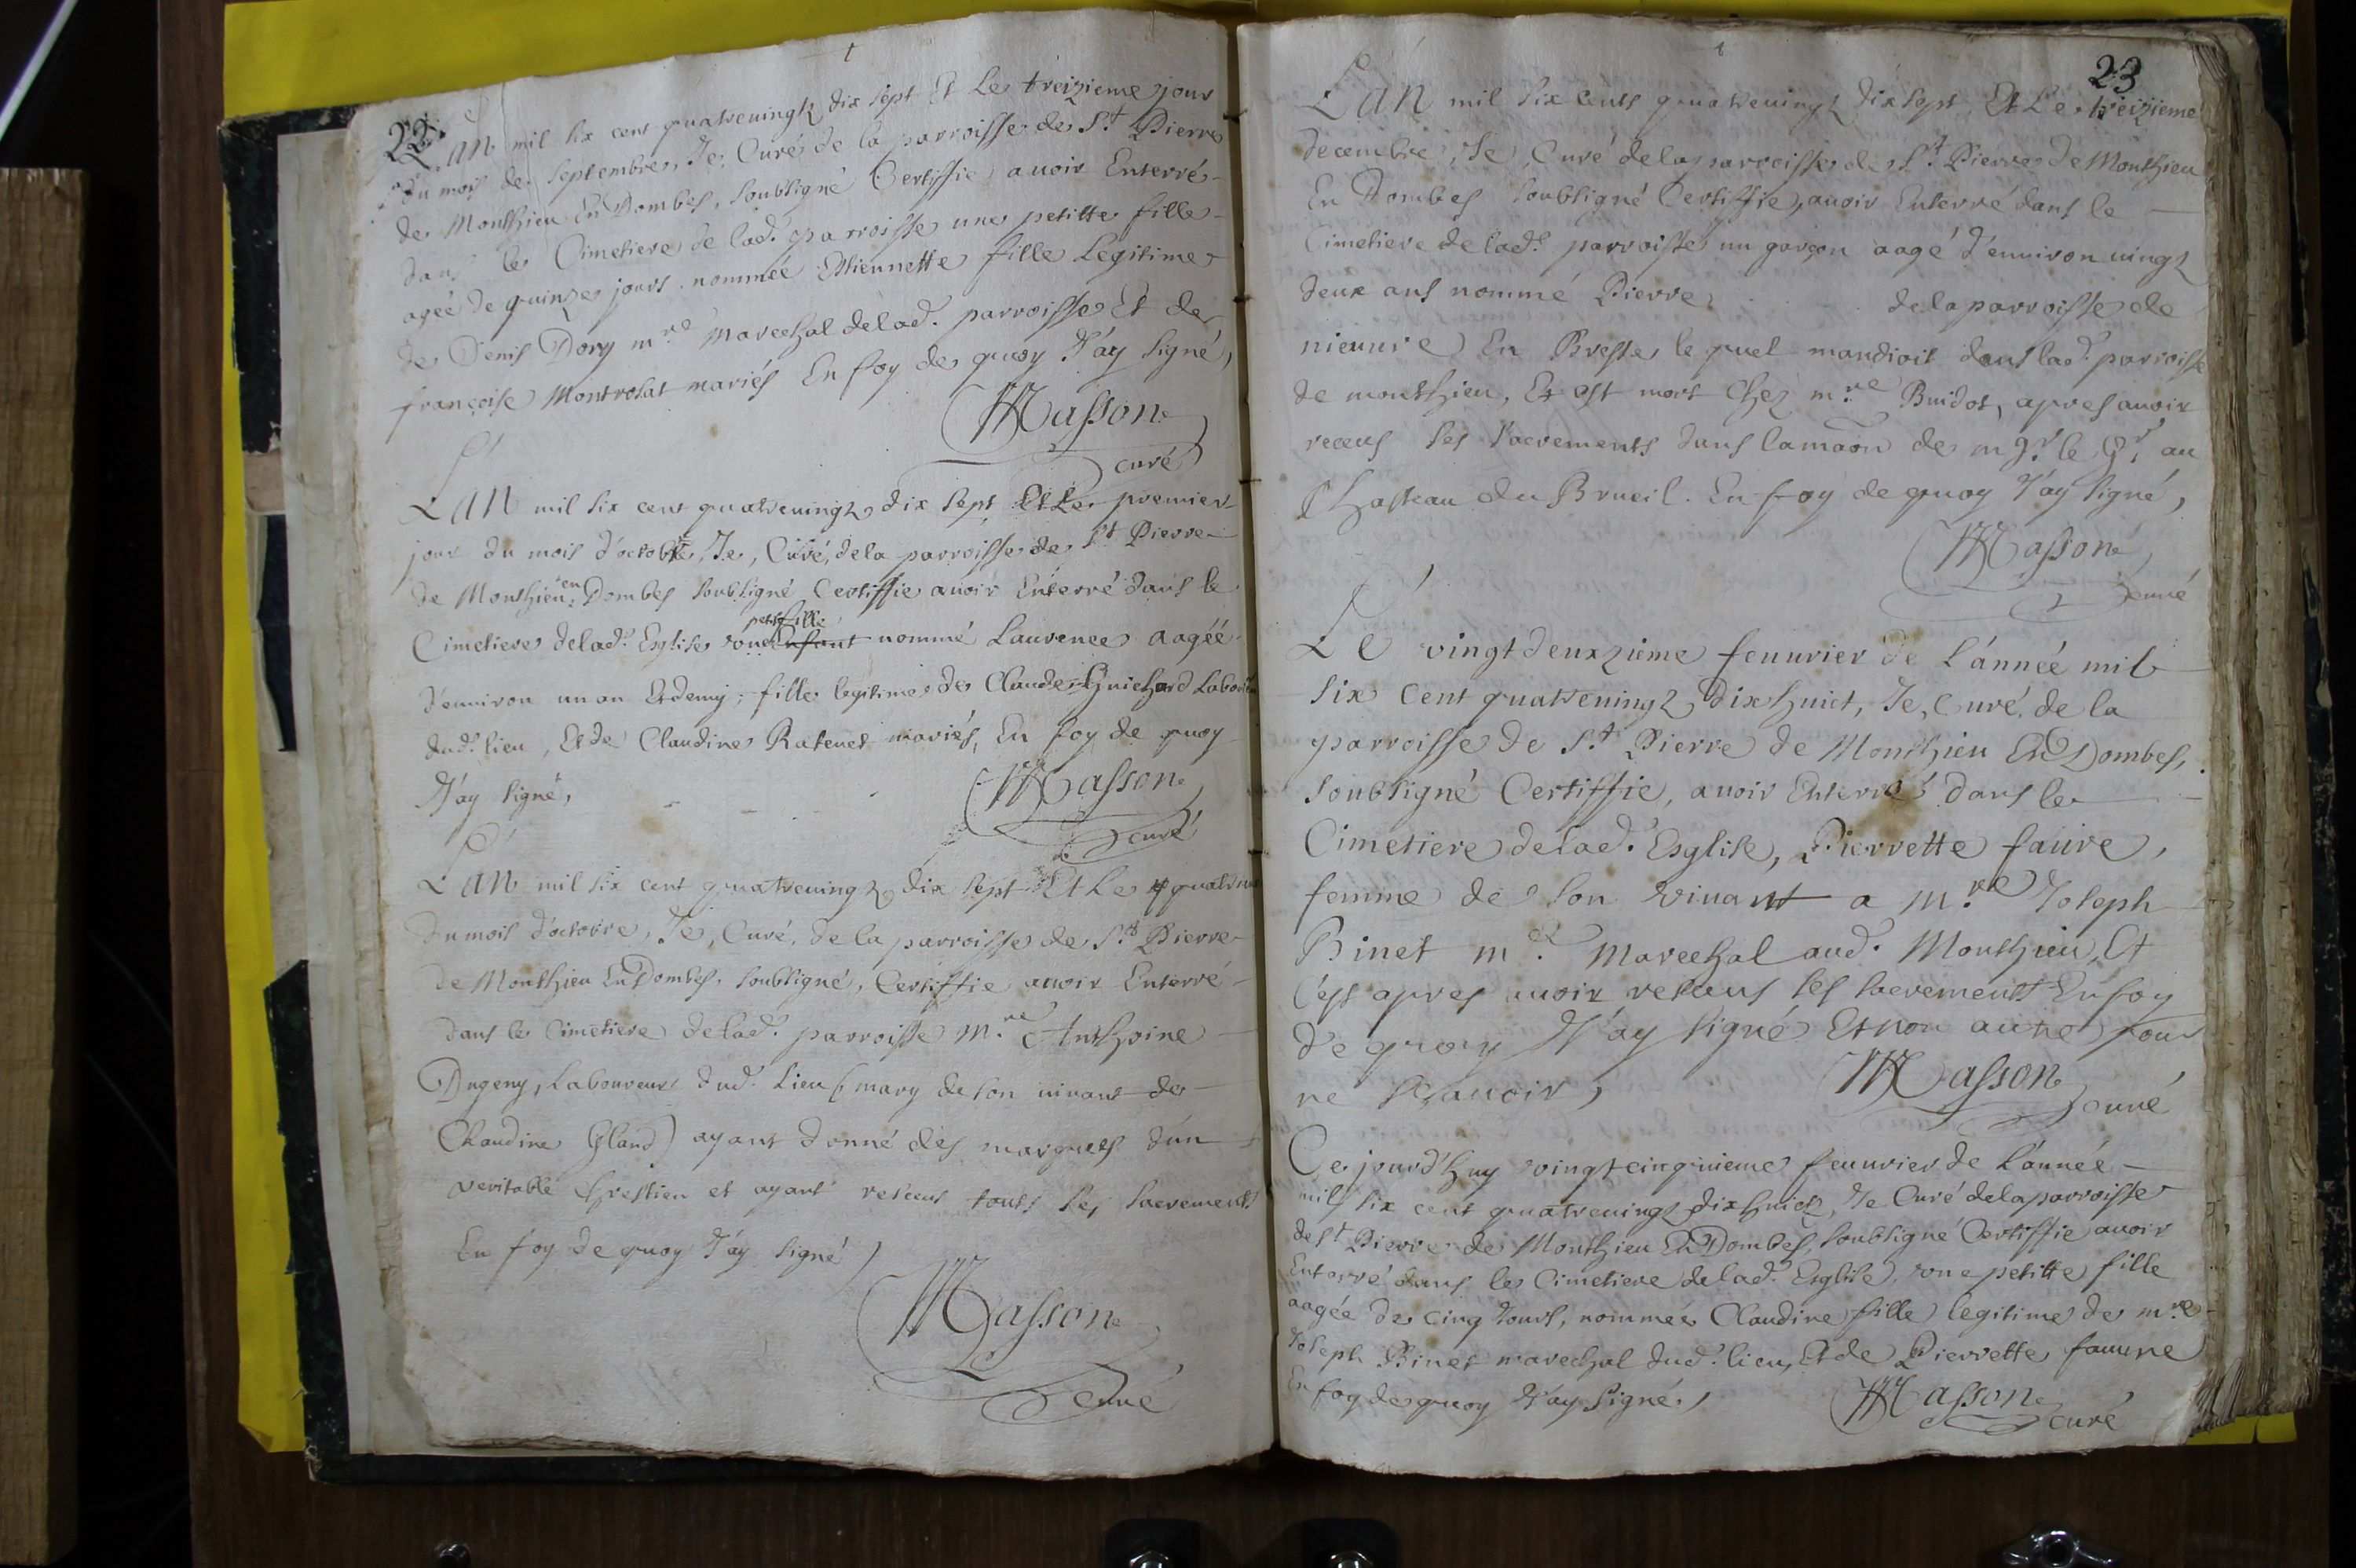 22.
L'an mil six cent quatrevingtz dix sept Et Le treizieme jour
du mois de septembre, Je, Curé de la parroisse de St Pierre
de Monthieu En Dombes, soubsigné Certiffie avoir Enterré
dans le Cimetiere de lad. parroisse une petitte fille
agée de quinze jours nommée Estiennette fille Legitime
de Denis Dory mre Marechal delad. parroisse Et de
françoise Montrolat mariés En foy de quoy J'ay signé,
Masson
curé
L'an mil six cent quatrevingtz dix sept Et Le premier
jour du mois d'octobre, Je, Curé, dela parroisse de St Pierre
de Monthieu en Dombes soubsigné Certiffie avoir Enterré dans le
petite fille
Cimetiere delad. Esglise une Enfant nommé Laurence aagéé
d'environ un an Et demy, fille legitime de Claude Guichard Labour
dud. lieu, Et de Claudine Ratenet mariés, En foy de quoy
J'ay signé,
Masson
curé
L'an mil six cent quatrevingtz dix sept Et Le quatrieme
du mois d'octobre, Je, Curé, de la parroisse de St Pierre
de Monthieu En Dombes, soubsigné, Certiffie avoir Enterré
dans le Cimetiere delad. parroisse Mre Anthoine
Dugeny, Laboureur dud. Lieu (mary de son vivant de
Claudine Gland) ayant donné des marques d'un
veritable Chrestien et ayant receus touts les sacrements
En foy de quoy J'ay signé,
Masson
curé
23
L'an mil six cents quatrevingtz dix sept, Et Le treizieme
decembre, Je, Curé de la parroisse de St Pierre de Monthieu
En Dombes soubsigné Certiffie, avoir Enterré dans le
Cimetiere de lad. parroisse un garçon aagé d'environ vingtz
deux ans nommé Pierre de la parroisse de
nieuure En Bresse, le quel mandioit dans lad. parroisse
de monthieu, Et est mort Chez mre Buidot, apres avoir
receus les sacrements dans la maon de mgr le Gr. au
Chasteau du Brueil. En foy de quoy J'ay signé,
Masson
curé
Le vingtdeuxzieme feuvrier de L'année mil
six Cent quatrevingtz dix huict, Je, Curé, de la
parroisse de St Pierre de Monthieu En Dombes,
soubsigné Certiffie, avoir Enterré dans le
Cimetiere delad. Esglise, Pierrette faure,
femme de son vivant a mre Joseph
Binet me. Marechal aud. Monthieu, Et
c'est apres avoir receus les sacrements En foy
de quoy J'ay signé Et non autre pour
ne sçavoir,
Masson
curé
Ce jourd'huy vingtcinquieme feuvrier de L'année
mil six cent quatrevingtz dix huict, Je Curé de la parroisse
de St Pierre de Monthieu En Dombes, soubsigné Certiffie avoir
Enterré dans le Cimetiere delad. Esglise, une petitte fille
aagée de cinq Jours, nommée Claudine fille legitime de mre
Joseph Binet marechal dud. lieu, Et de Pierrette fauure
En foy de quoy J'ay signé,
Masson
curé